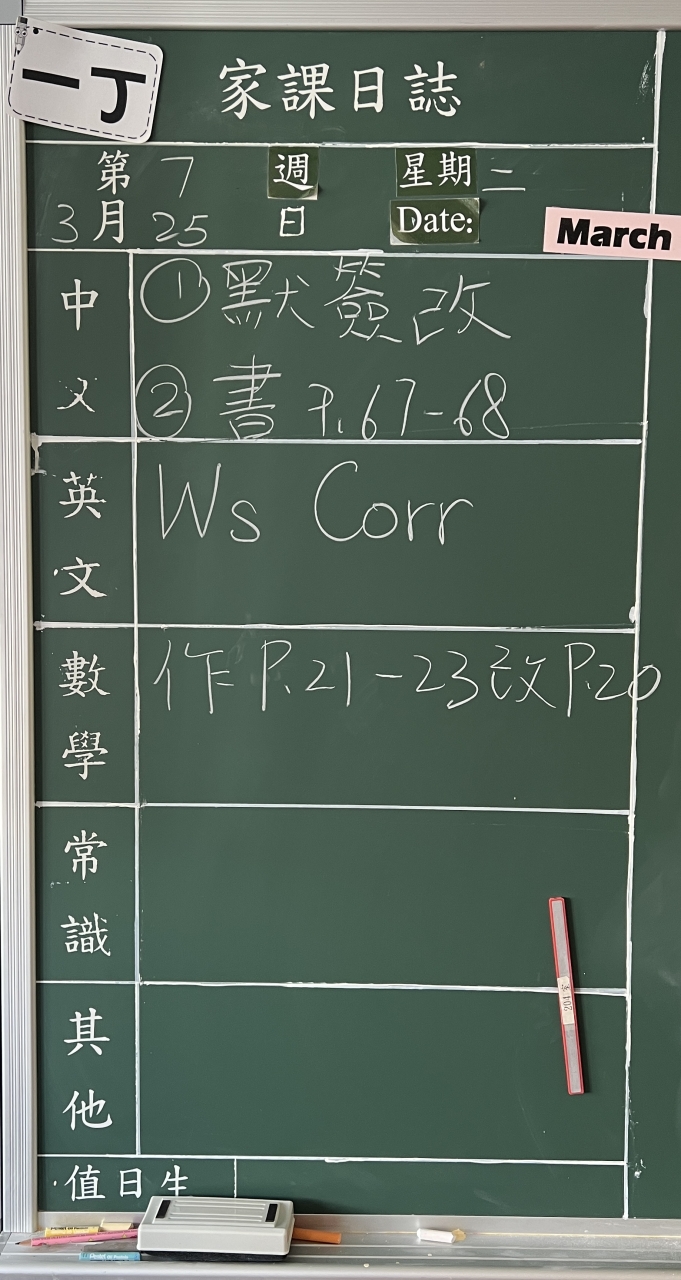 一丁
家課日誌
第 7 週 星期二
3月25日 Date:
March
中文
① 默簽改
② 書 P.67-68
英文
Ws Corr
數學
作 P.21-23 改 P.20
常識
其他
值日生